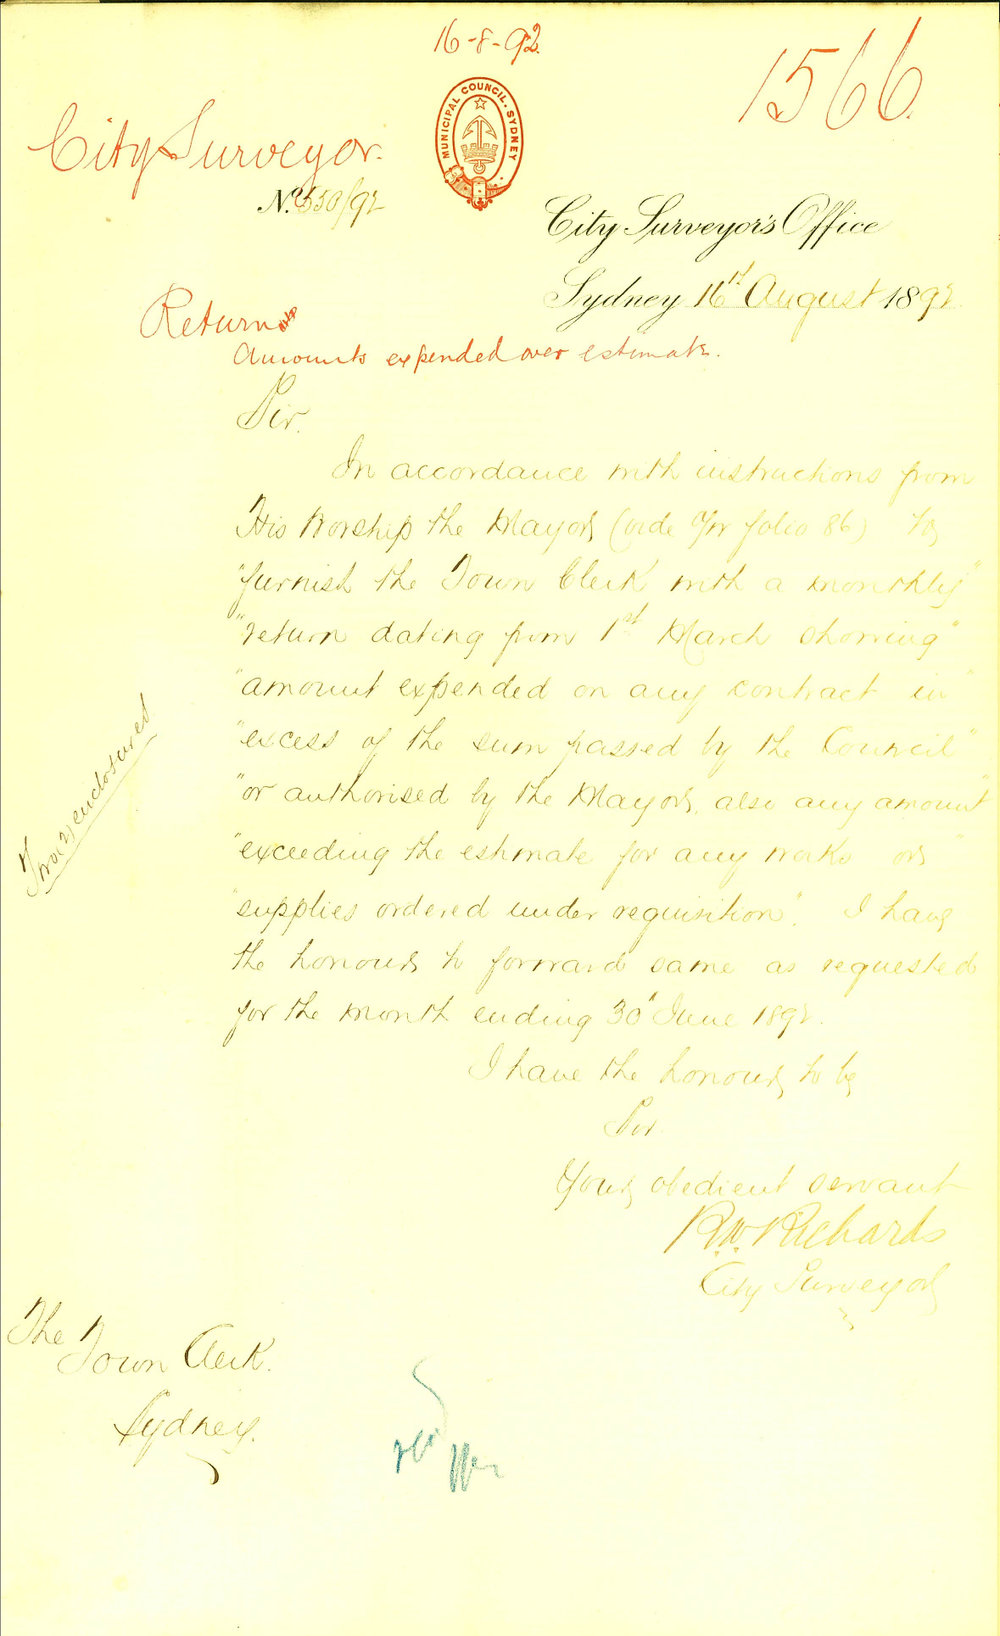 16-8-92
1566.
MUNICIPAL COUNCIL. SYDNEY
City Surveyor.
No. 550/92
City Surveyor's Office
Sydney 16th August 1892
Return
Amounts expended over estimate.
Sir.
In accordance with instructions from
His Worship the Mayor (vide folio 86) to
"furnish the Town Clerk with a monthly"
"return dating from 1st March showing"
"amount expended on any contract in"
"excess of the sum passed by the Council"
"or authorised by the Mayor, also any amount"
"exceeding the estimate for any works or"
"supplies ordered under requisition". I have
the honour to forward same as requested
for the month ending 30th June 1892.
I have the honour to be
Sir
Your obedient servant
R.W. Richards
City Surveyor
enclosures
The
Town Clerk.
Sydney.